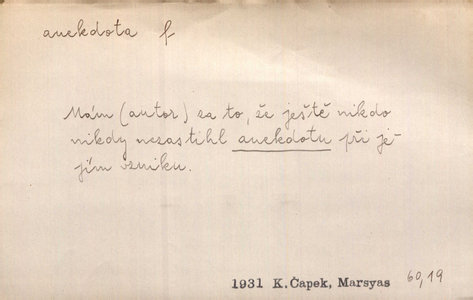 anekdota f
Mám (autor) za to, že ještě nikdo
nikdy nezastihl anekdotu při je-
jím vzniku.
1931 K.Čapek, Marsyas 60,19